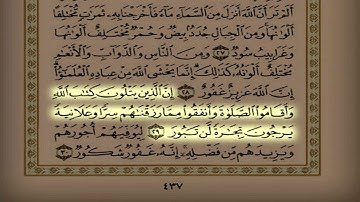 أَلَمْ تَرَ أَنَّ ٱللَّهَ أَنزَلَ مِنَ ٱلسَّمَآءِ مَآءً فَأَخْرَجْنَا بِهِۦ ثَمَرَٰتٍ مُّخْتَلِفًا
أَلْوَٰنُهَا وَمِنَ ٱلْجِبَالِ جُدَدٌۢ بِيضٌ وَحُمْرٌ مُّخْتَلِفٌ أَلْوَٰنُهَا
وَغَرَابِيبُ سُودٌ ٢٧ وَمِنَ ٱلنَّاسِ وَٱلدَّوَآبِّ وَٱلْأَنْعَٰمِ
مُخْتَلِفٌ أَلْوَٰنُهُۥ كَذَٰلِكَ إِنَّمَا يَخْشَى ٱللَّهَ مِنْ عِبَادِهِ ٱلْعُلَمَٰٓؤُا۟
إِنَّ ٱللَّهَ عَزِيزٌ غَفُورٌ ٢٨ إِنَّ ٱلَّذِينَ يَتْلُونَ كِتَٰبَ ٱللَّهِ
وَأَقَامُوا۟ ٱلصَّلَوٰةَ وَأَنفَقُوا۟ مِمَّا رَزَقْنَٰهُمْ سِرًّا وَعَلَانِيَةً
يَرْجُونَ تِجَٰرَةً لَّن تَبُورَ ٢٩ لِيُوَفِّيَهُمْ أُجُورَهُمْ
وَيَزِيدَهُم مِّن فَضْلِهِۦٓ إِنَّهُۥ غَفُورٌ شَكُورٌ ٣٠
٤٣٧